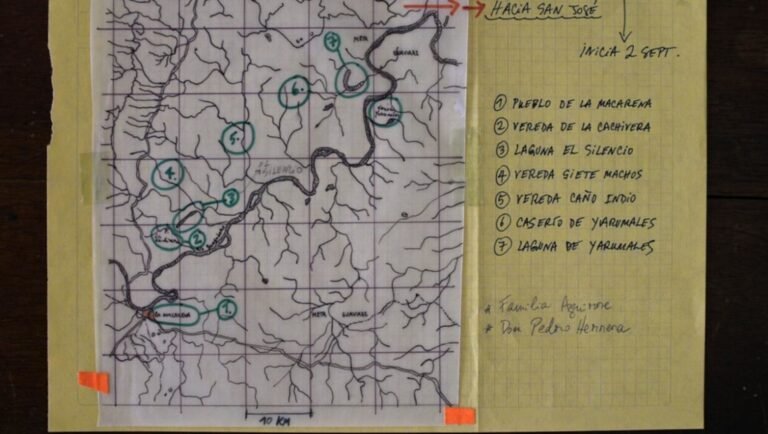 HACIA SAN JOSÉ
INICIA 2 SEPT.
1 PUEBLO DE LA MACARENA
2 VEREDA DE LA CACHIVERA
3 LAGUNA EL SILENCIO
4 VEREDA SIETE MACHOS
5 VEREDA CAÑO INDIO
6 CASERÍO DE YARUMALES
7 LAGUNA DE YARUMALES
* Familia Aguirre
* Don Pedro Herrera
7
META
6.
5.
EL SILENCIO
4.
3
2
LA MACARENA
1.
META
10 KM